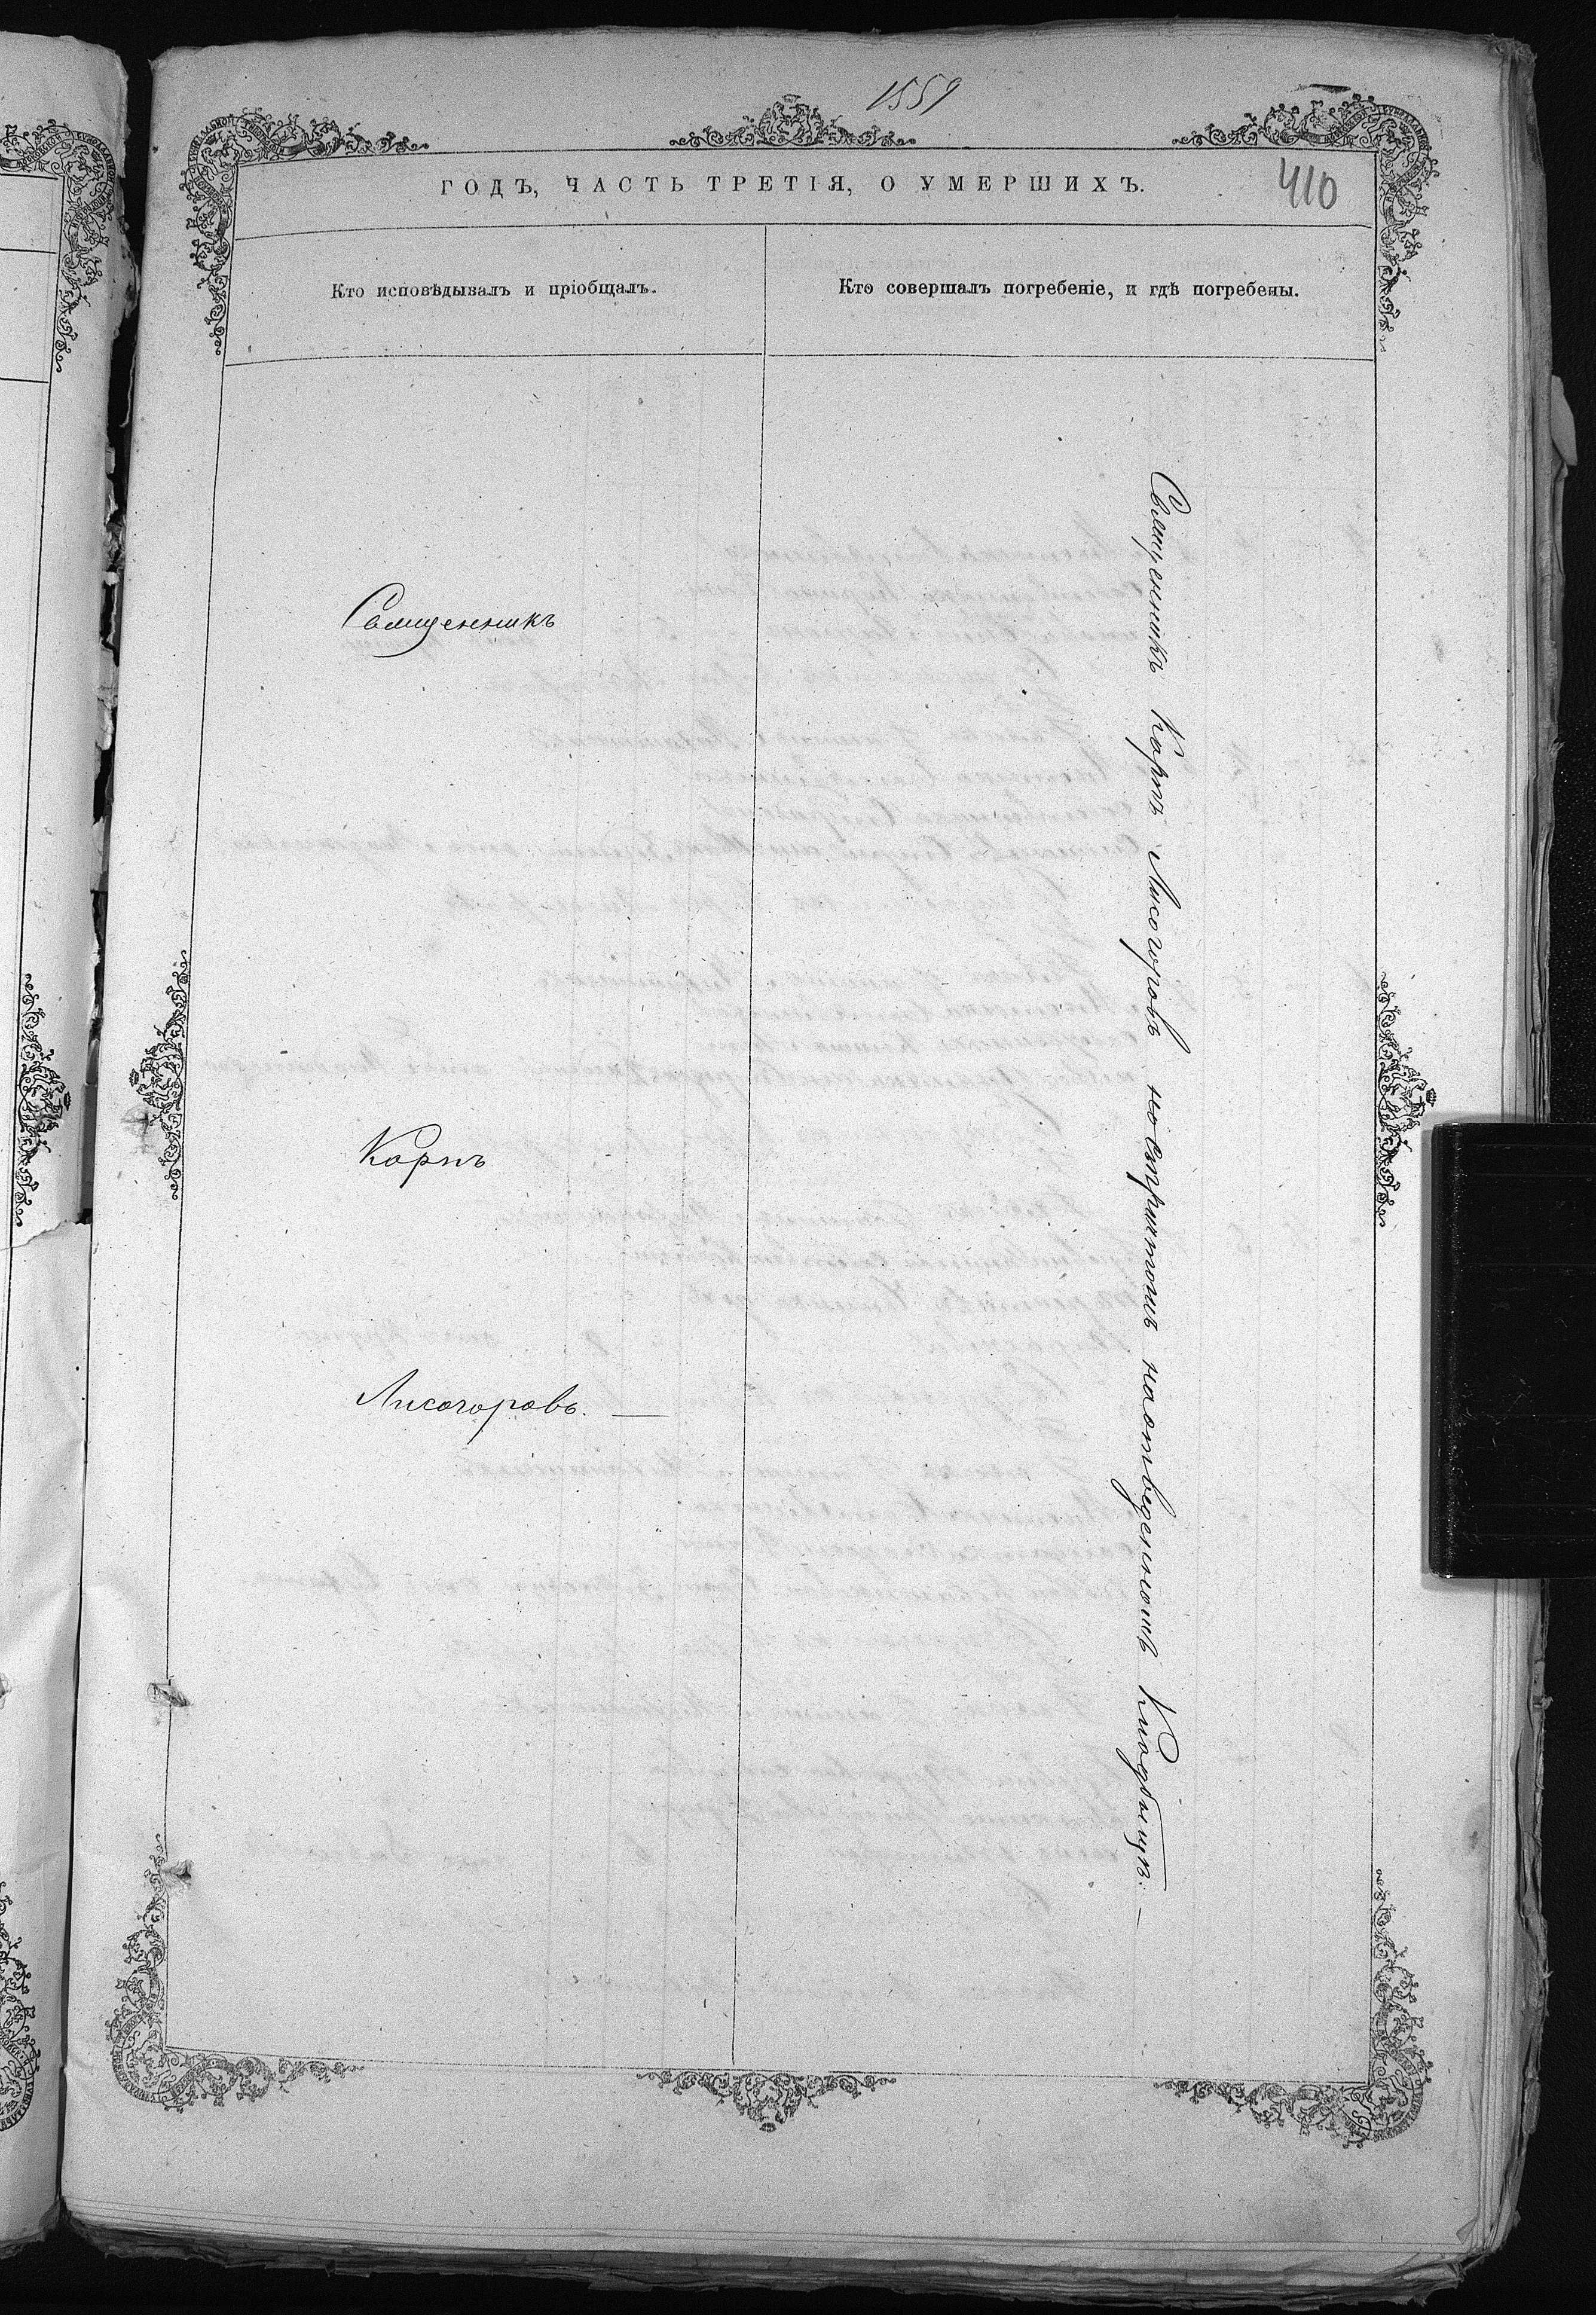 1559
ГОДЪ, ЧАСТЬ ТРЕТІЯ, О УМЕРШИХЪ.
410
Кто исповѣдывалъ и пріобщалъ.
Кто совершалъ погребеніе, и гдѣ погребены.
Священникъ
Карпъ
Лисогоровъ. —
Священникъ Карпъ Лисогоровъ на отведенномъ Кладбищѣ. —